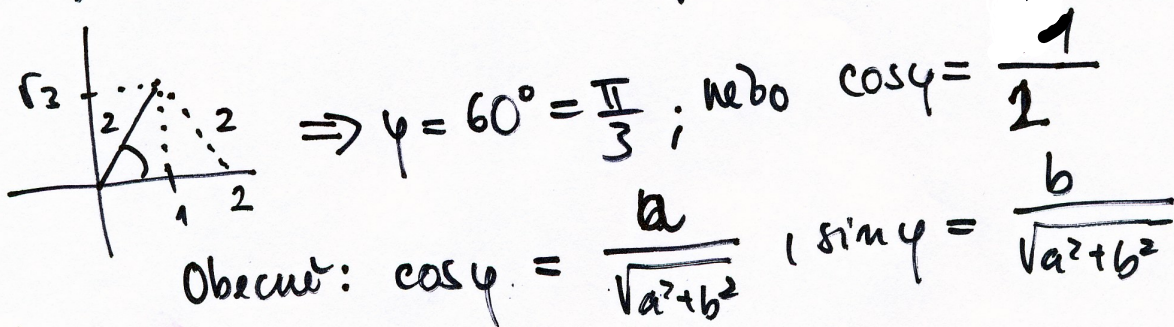 √3
2 2
1 2
⇒ φ = 60° = π/3 ; nebo cosφ = 1/2
Obecně: cosφ = a/√(a²+b²) , sinφ = b/√(a²+b²)